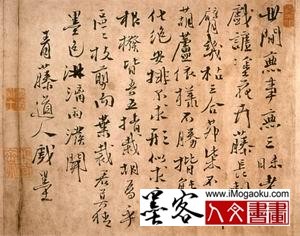 世間無事無三昧老
戲謔塗花卉藤長刺
臂幾枯三合茅柴不
葫蘆依樣不勝揩能
化絕安排不求形似求
根撥皆吾五指栽胡為乎
區區枝剪而葉裁君莫猜
墨色淋漓雨撥開
青藤道人戲墨
www.iMogaoku.com
墨客
人文書畫